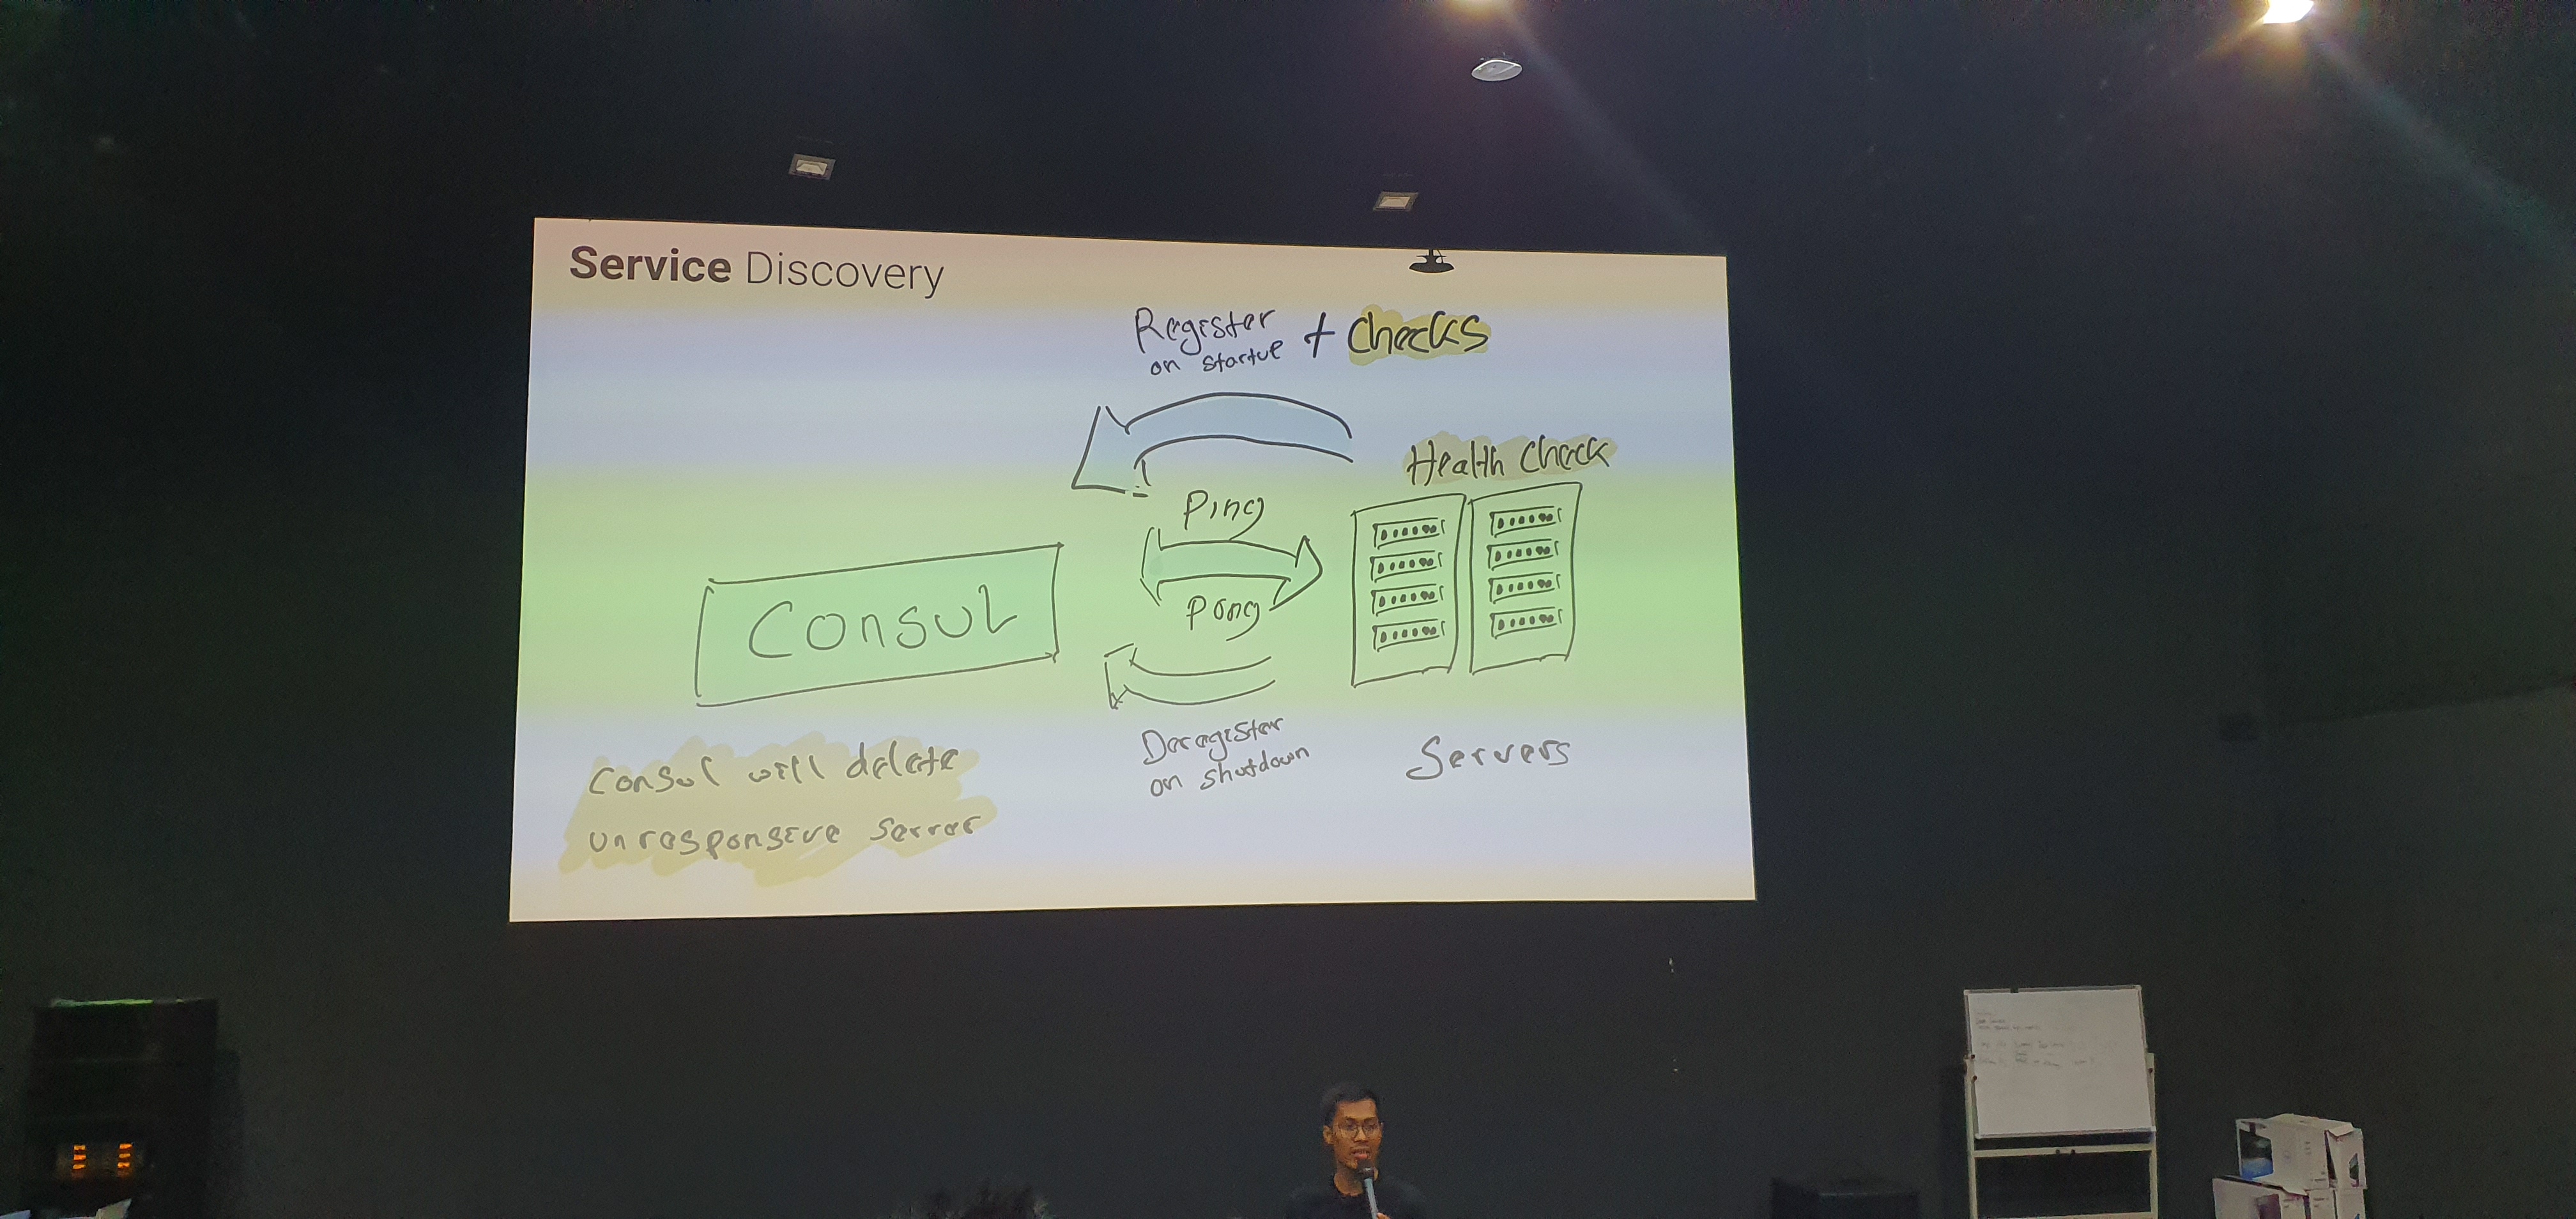 Service Discovery
Register + Checks
on startup
Health Check
Ping
Pong
Consul
Deregister
on shutdown
Servers
Consul will delete
unresponsive server